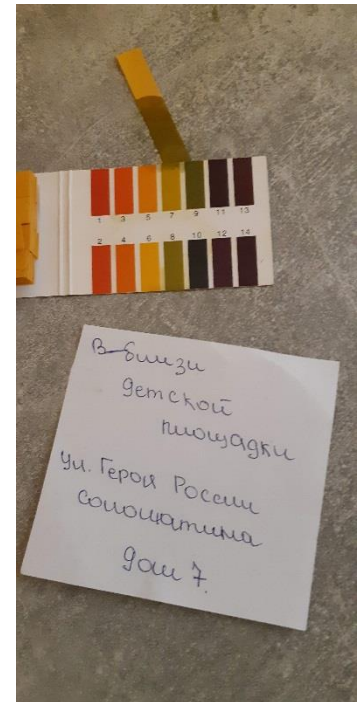 1 3 5 7 9 11 13
2 4 6 8 10 12 14
В-близи
детской
площадки
ул. Героя России
Соломатина
дом 7.